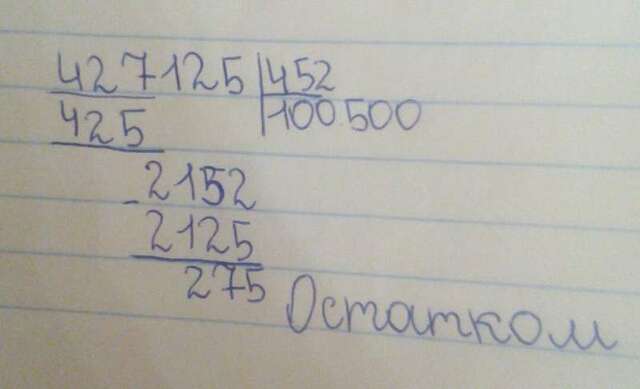 427125 452
425 100.500
- 2152
2125
275 Остатком